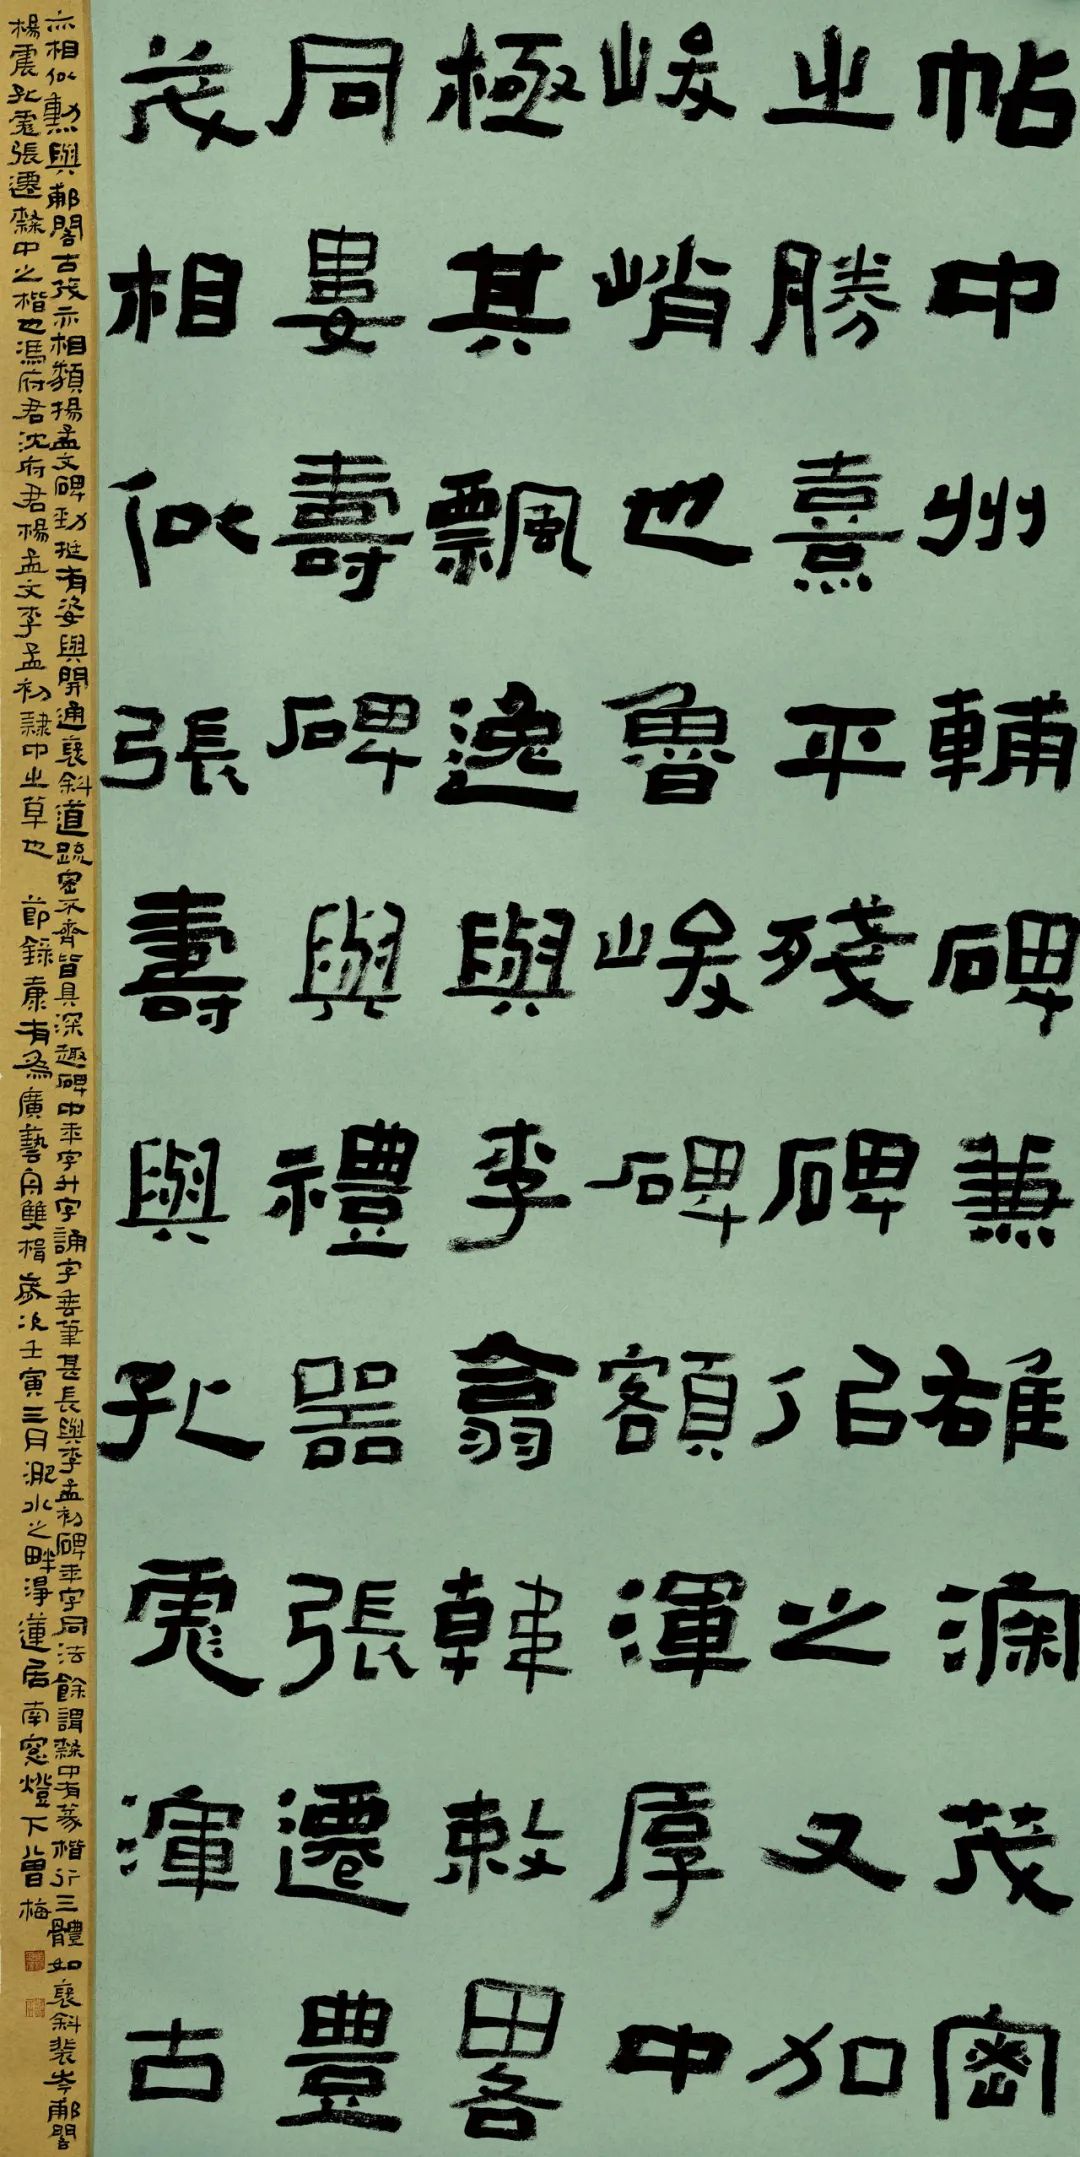 帖中州輔碑兼雄深茂密
之勝熹平殘碑佀之又加
峻峭也魯峻碑額渾厚中
極其飄逸與李翕韓敕畧
同婁壽碑與禮器張遷豐
茂相似張壽與孔彪渾古
亦相似勳與郙閣古茂亦相類揚孟文碑勁挺有姿與開通褒斜道疏密不齊皆具深趣碑中年字升字誦字垂筆甚長與李孟初碑年字同法餘謂隸中有篆楷行三體如褒斜裴岑郙閣
楊震孔彪張遷隸中之楷也馮府君沈府君楊孟文李孟初隸中之草也 節錄康有為廣藝舟雙楫歲次壬寅三月淝水之畔淨蓮居南窗燈下曾梅